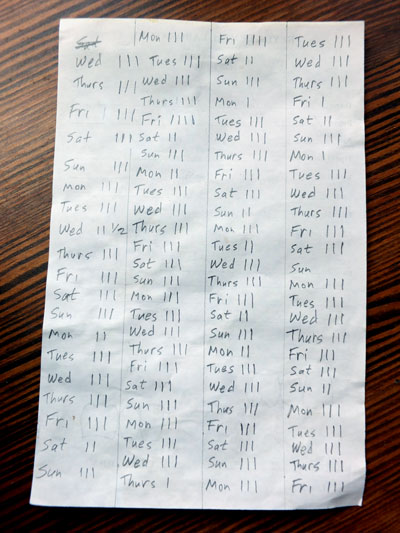 Sat
Wed |||
Thurs |||
Fri |||
Sat |||
Sun |||
Mon |||
Tues |||
Wed || 1/2
Thurs |||
Fri |||
Sat |||
Sun |||
Mon ||
Tues |||
Wed |||
Thurs |||
Fri |||
Sat ||
Sun |||
Mon |||
Tues |||
Wed |||
Thurs |||
Fri ||||
Sat ||
Sun |||
Mon ||
Tues |||
Wed |||
Thurs |||
Fri |||
Sat |||
Sun |||
Mon |||
Tues |||
Wed |||
Thurs |||
Fri |||
Sat |||
Sun |||
Mon |||
Tues |||
Wed |||
Thurs |
Fri ||||
Sat ||
Sun |||
Mon |
Tues |||
Wed |||
Thurs |||
Fri |||
Sat |||
Sun ||
Mon |||
Tues ||
Wed |||
Thurs |||
Fri |||
Sat ||
Sun |||
Mon ||
Tues |||
Wed |||
Thus |||
Fri |||
Sat |||
Sun |||
Mon |||
Tues |||
Wed |||
Thurs |||
Fri |
Sat ||
Sun |||
Mon |
Tues |||
Wed |||
Thurs |||
Fri |||
Sat |||
Sun
Mon |||
Tues |||
Wed |||
Thurs |||
Fri |||
Sat |||
Sun ||
Mon |||
Tues |||
Wed |||
Thurs |||
Fri |||